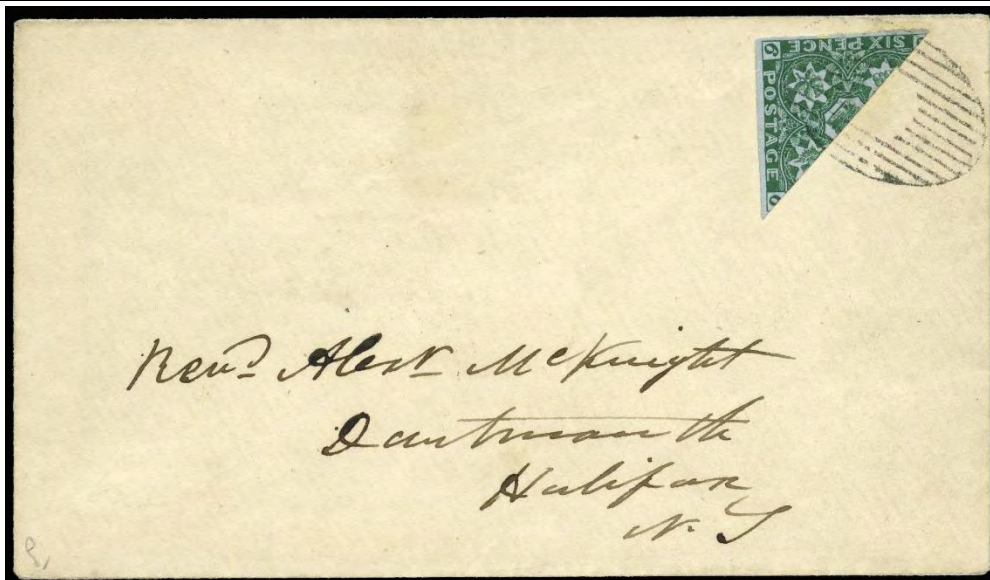 SIX PENCE
6 POSTAGE 6
Revd Alexr McKnight
Dartmouth
Halifax
N. S